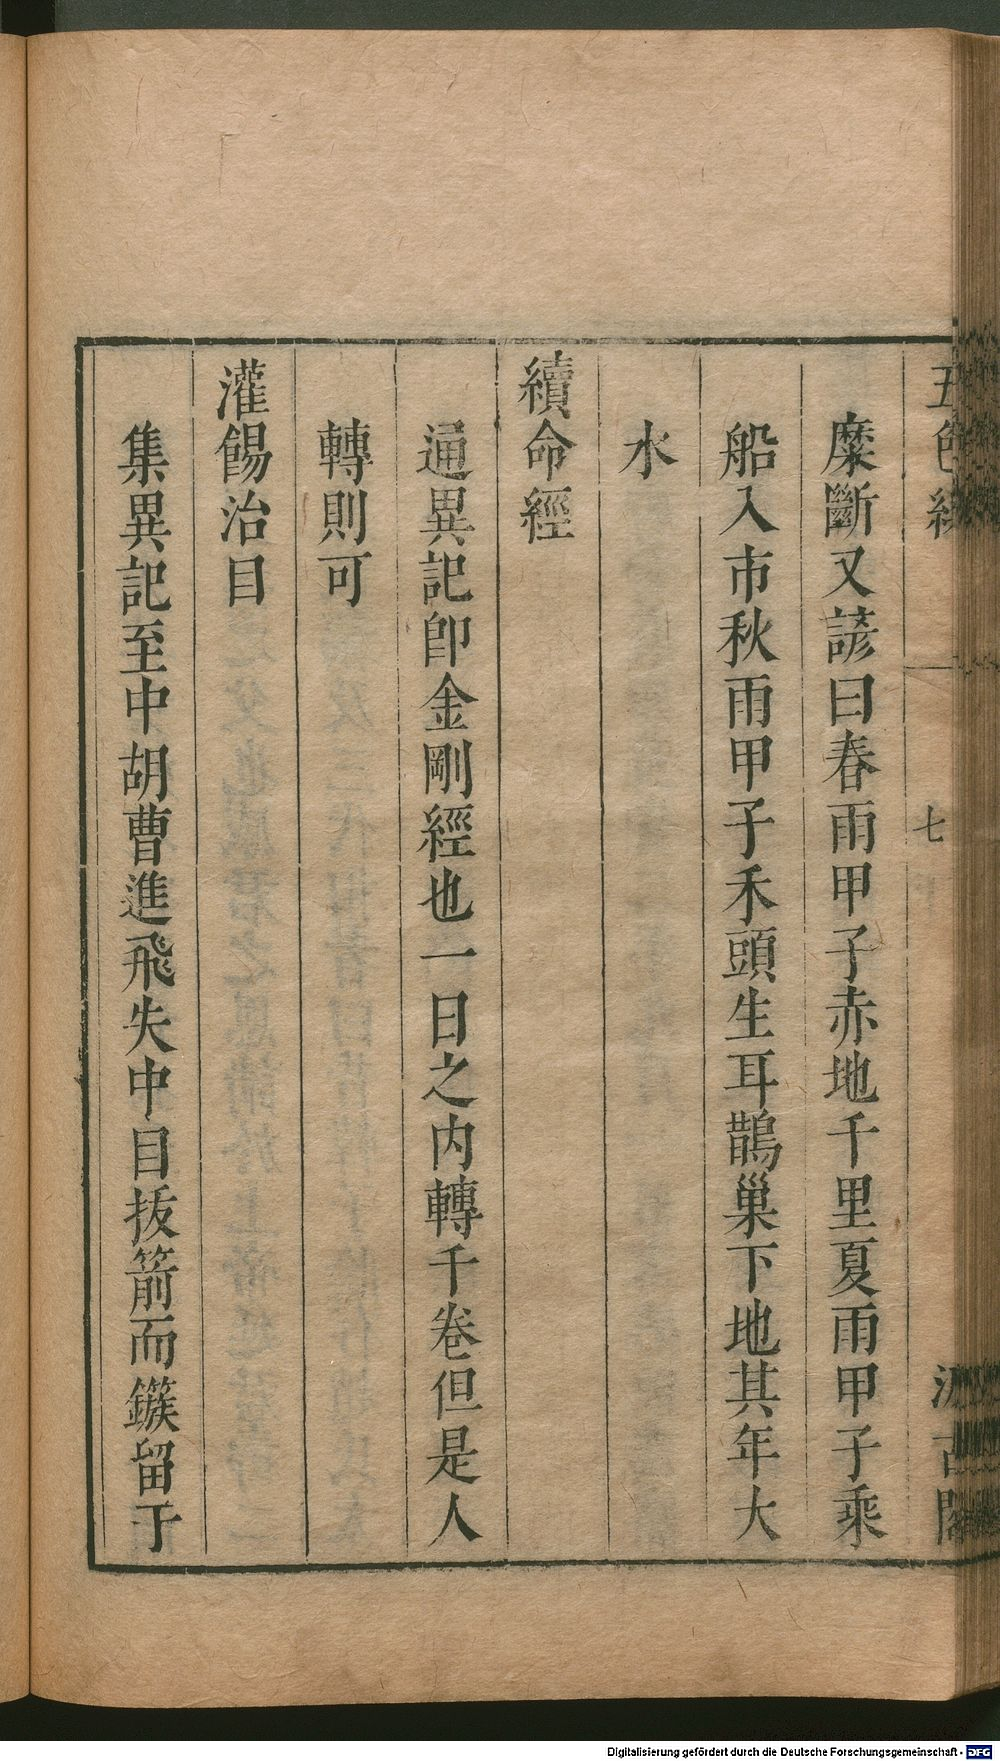 五色線
七
汲古閣
糜斷又諺曰春雨甲子赤地千里夏雨甲子乘
船入市秋雨甲子禾頭生耳鵲巢下地其年大
水
續命經
通異記卽金剛經也一日之内轉千卷但是人
轉則可
灌餳治目
集異記至中胡曹進飛矢中目拔箭而鏃留于
Digitalisierung gefördert durch die Deutsche Forschungsgemeinschaft - DFG